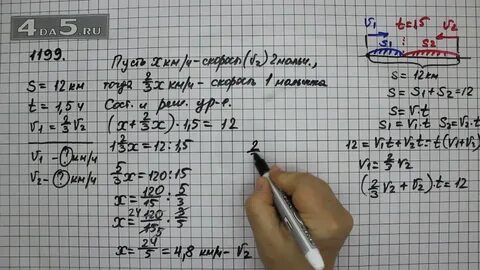 4DA5.RU
1199.
S = 12 км
t = 1,5 ч
V₁ = 2/3 V₂
V₁ - ? км/ч
V₂ - ? км/ч
Пусть x км/ч - скорост (V₂) 2 мальч.,
тогда 2/3 x км/ч - скорость 1 мальчика
Сост. и реш. ур-е.
(x + 2/3 x) · 1,5 = 12
1 2/3 x = 12 : 1,5
5/3 x = 120 : 15
x = 120/15 : 5/3
x = 24 120/15 5 · 3/5
x = 24/5 = 4,8 км/ч - V₂
2
V₁ t = 1,5 V₂
S₁ S₂
S = 12 км
S = S₁ + S₂ = 12
S = V · t
S₁ = V₁ · t S₂ = V₂ · t
12 = V₁t + V₂ · t = t(V₁ + V₂)
V₁ = 2/3 V₂
(2/3 V₂ + V₂) · t = 12